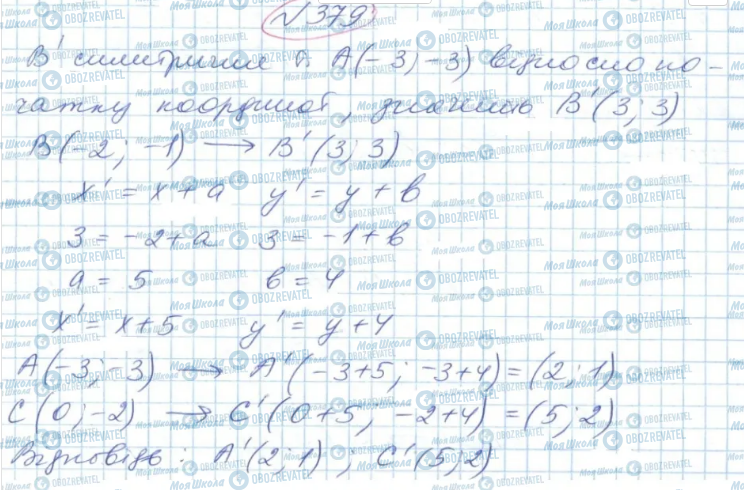 №379
B' симетричня т. A(-3; -3) відносно по-
чатку координат, значить B'(3; 3)
B(-2; -1) → B'(3; 3)
x' = x + a y' = y + b
3 = -2+a 3 = -1+b
a = 5 b = 4
x' = x+5 y' = y+4
A(-3; -3) → A'(-3+5; -3+4) = (2; 1)
C(0; -2) → C'(0+5; -2+4) = (5; 2)
Відповідь: A'(2; 1); C'(5; 2)
Моя Школа OBOZREVATEL